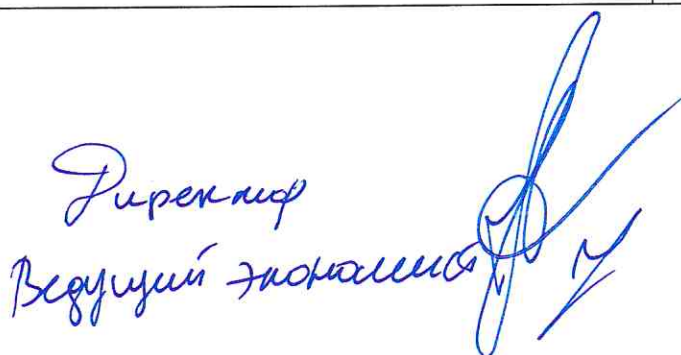 Директор
Ведущий экономист